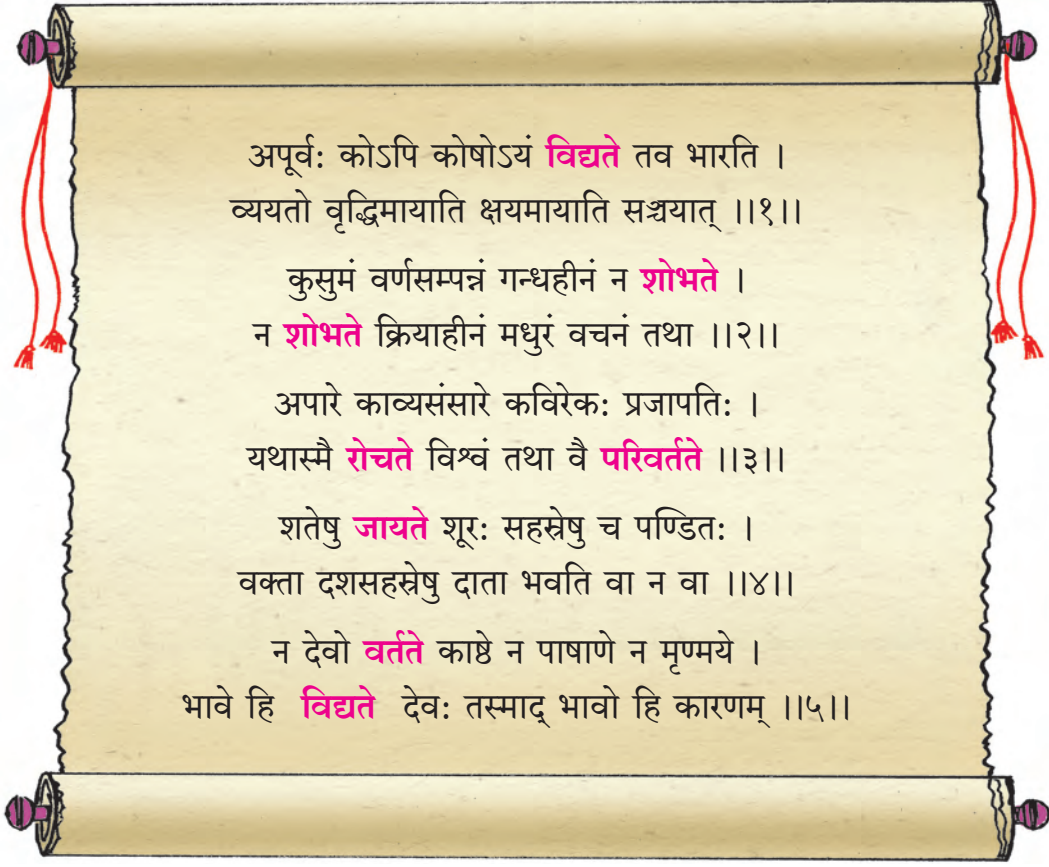 अपूर्व: कोऽपि कोषोऽयं विद्यते तव भारति ।
व्ययतो वृद्धिमायाति क्षयमायाति सञ्चयात् ।।१।।
कुसुमं वर्णसम्पन्नं गन्धहीनं न शोभते ।
न शोभते क्रियाहीनं मधुरं वचनं तथा ।।२।।
अपारे काव्यसंसारे कविरेक: प्रजापति: ।
यथास्मै रोचते विश्वं तथा वै परिवर्तते ।।३।।
शतेषु जायते शूर: सहस्रेषु च पण्डित: ।
वक्ता दशसहस्रेषु दाता भवति वा न वा ।।४।।
न देवो वर्तते काष्ठे न पाषाणे न मृण्मये ।
भावे हि विद्यते देव: तस्माद् भावो हि कारणम् ।।५।।